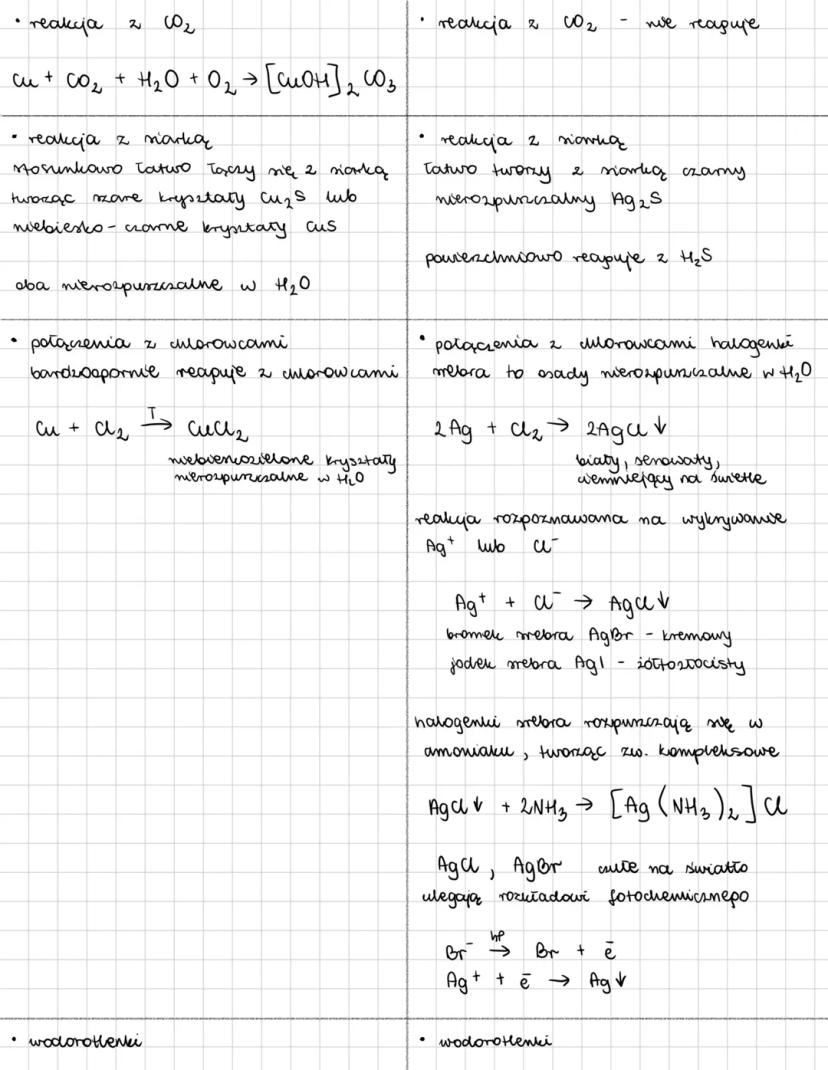 • reakcja z CO₂
Cu + CO₂ + H₂O + O₂ → [CuOH]₂CO₃
• reakcja z CO₂ - nie reaguje
• reakcja z siarką
stosunkowo łatwo łączy się z siarką
tworząc szare kryształy Cu₂S lub
niebiesko-czarne kryształy CuS
oba nierozpuszczalne w H₂O
• reakcja z siarką
łatwo tworzy z siarką czarny
nierozpuszczalny Ag₂S
powierzchniowo reaguje z H₂S
• połączenia z chlorowcami
bardzoopornie reaguje z chlorowcami
Cu + Cl₂ →T CuCl₂
niebieskozielone kryształy
nierozpuszczalne w H₂O
• połączenia z chlorowcami halogenki
srebra to osady nierozpuszczalne w H₂O
2Ag + Cl₂ → 2AgCl↓
biały, serowaty,
ciemniejący na świetle
reakcja rozpoznawana na wykrywanie
Ag⁺ lub Cl⁻
Ag⁺ + Cl⁻ → AgCl↓
bromek srebra AgBr - kremowy
jodek srebra AgI - żółtozłocisty
halogenki srebra rozpuszczają się w
amoniaku, tworząc zw. kompleksowe
AgCl↓ + 2NH₃ → [Ag(NH₃)₂]Cl
AgCl, AgBr czułe na światło
ulegają rozkładowi fotochemicznego
Br⁻ → Br + ē
Ag⁺ + ē → Ag↓
• wodorotlenki
• wodorotlenki